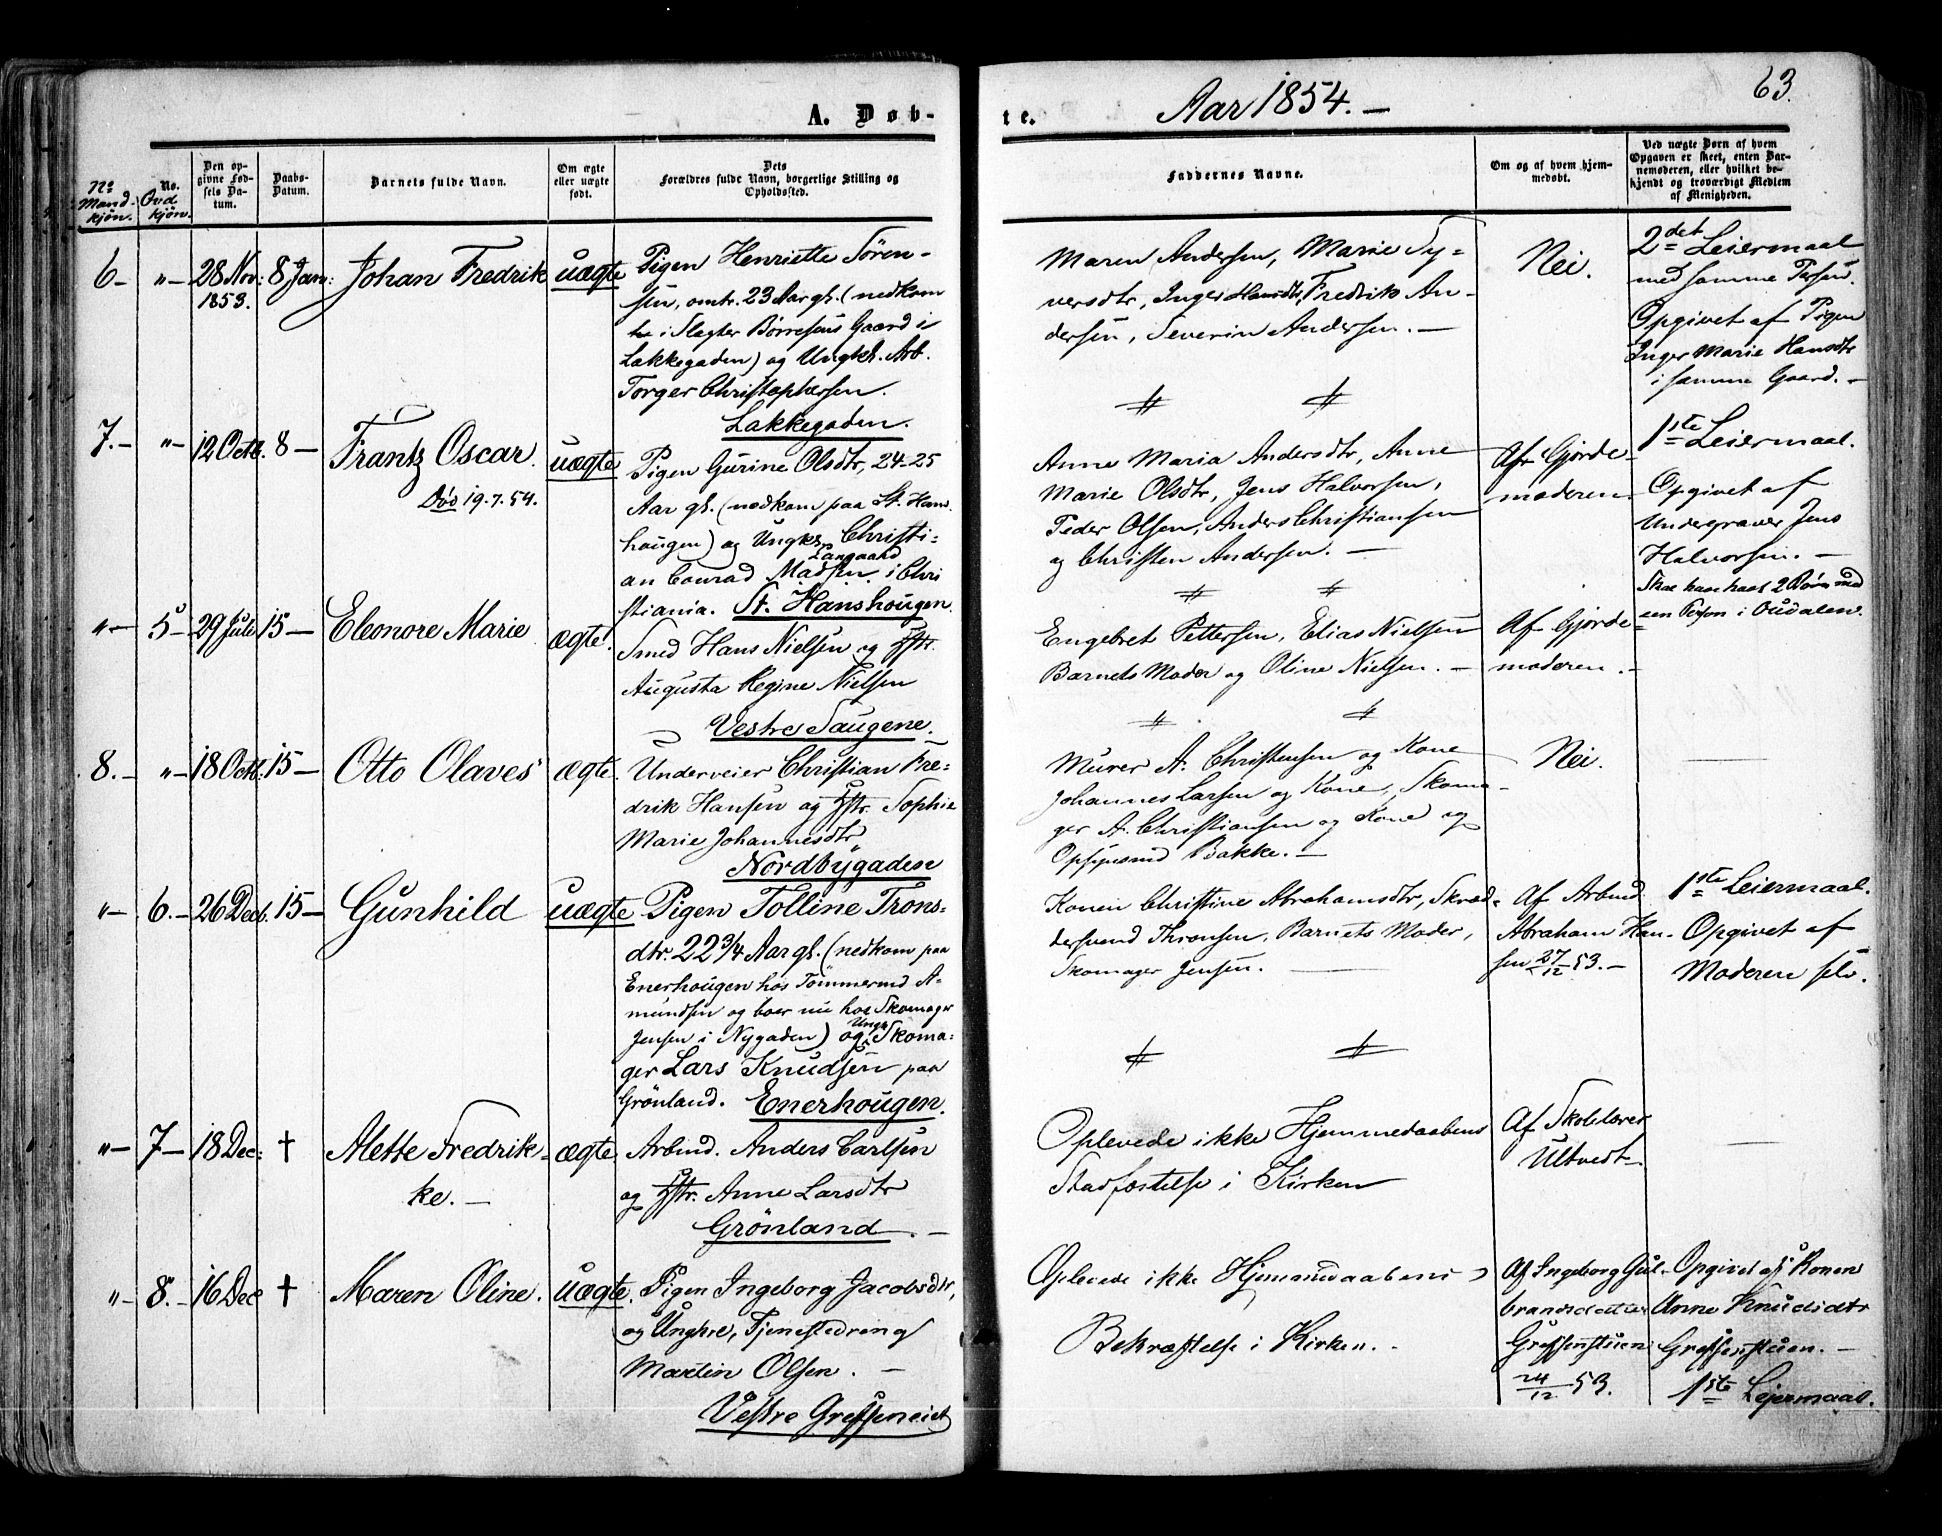 63.
A. Døb-
te. Aar 1854. –
No Mand-kjøn.
No. Qvd. kjøn.
Den op-
givne Fød-
sels Da-
tum.
Daabs-
Datum.
Barnets fulde Navn.
Om ægte
eller uægte
født.
Dets
Forældres fulde Navn, borgerlige Stilling og
Opholdssted.
Faddernes Navne.
Om og af hvem hjem-
medøbt.
Ved uægte Børn af hvem
Opgaven er skeet, enten Bar-
nemoderen, eller hvilket be-
kjendt og troværdigt Medlem
af Menigheden.
6 – „ – 28 Nov: 1853. 8 Jan: Johan Fredrik uægte
Pigen Henriette Sören-
sen, omtr. 23 Aar gl. (nedkom
he i Slagter Børresens Gaard i
Lakkegaden) og Ungkl. Arb.
Torger Christophersen.
Lakkegaden.
Maren Andersen, Marie Sy-
versdtr, Inger Hansdtr, Fredrik An-
dersen, Severin Andersen. –
Nei.
2det Leiermaal
med samme Person.
Opgivet af Pigen
Inger Marie Hansdtr
i samme Gaard. –
7. – „ – 12 Octb. 8 – Frantz Oscar. uægte
Død 19.7.54.
Pigen Gurine Olsdtr, 24-25
Aar gl. (nedkom paa St. Hans
hougen) og Ungkr. Christi-
an Conrad Langaard Madsen i Chri
stiania. St. Hanshougen.
Anne Maria Andersdtr, Anne
Marie Olsdtr, Jens Halvorsen,
Peder Olsen, Anders Christiansen
og Christen Andersen. –
Af Gjorde-
moderen.
1ste Leiermaal.
Opgivet af
Undergraver Jens
Halvorsen. –
Skal han have 2 Børn med
een Person i Oudalen.
„ – 5 – 29 Juli 15 – Eleonore Marie ægte.
Smed Hans Nielsen og Hstr.
Augusta Regine Nielsen
Vestre Saugene.
Engebret Pettersen, Elias Nielsen
Barnets Moder og Oline Nielsen. –
Af Gjorde-
moderen. –
8. – „ – 18 Octb. 15 – Otto Olaves ægte.
Underveier Christian Fre-
drik Hansen og Hstr. Sophie
Marie Johannesdtr
Nordbygaden
Murer A. Christensen og Kone
Johannes Larsen og Kone, Skoma-
ger A. Christiansen og Kone og
Opsynsmd Bakke. –
Nei.
„ – 6. – 26 Decb. 15 – Gunhild uægte
Pigen Tolline Trons-
dtr. 22 3/4 Aar gl. (nedkom paa
Enerhougen hos Tömmermd A-
mundsen og boer nu hos Skomager
Jensen i Nygaden) og Ungk. Skoma-
ger Lars Knudsen paa
Grönland. Enerhougen.
Konen Christine Abrahamsdtr, Skræd-
dersvend Thronsen, Barnets Moder,
Skomager Jensen. –
Af Arbmd
Abraham Han-
sen 27/12 53. –
1ste Leiermaal.
Opgivet af
Moderen selv.
„ – 7 – 18 Dec: † Alette Fredrik-
ke. – ægte
Arbmd. Anders Carlsen
og Hstr. Anne Larsdtr
Grönland. –
Oplevede ikke Hjemmedaabens
Stadfæstelse i Kirken
Af Skolelærer
Ultvedt
„ – 8. – 16 Dec † Maren Oline. uægte.
Pigen Ingeborg Jacobsdtr,
og Ungkre, Tjenestedreng
Martin Olsen. –
Vestre Grefseneiet
Oplevede ikke Hjemmedaabens
Bekræftelse i Kirken. –
Af Ingeborg Gul-
brandsdatter
Grefsenstuen
24/12 53.
Opgivet af Konen
Anne Knudsdtr
Grefsenstuen. –
1ste Lejermaal.